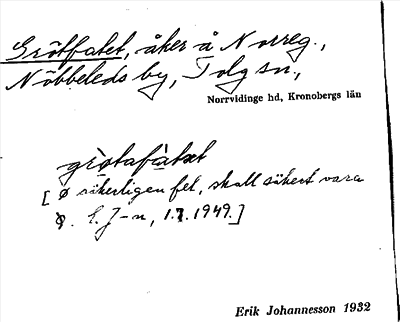 Grötfatet, åker å Norreg.,
Nöbbeleds by, Tolg sn,
Norrvidinge hd, Kronobergs län
grø̀tafàtət
[ø säkerligen fel, skall säkert vara
E. J-n, 1.7.1949.]
Erik Johannesson 1932